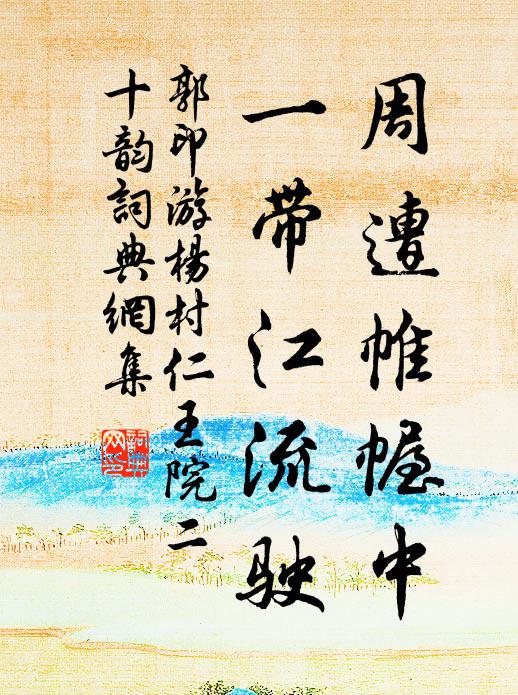 周遭帷幄中
一带江流驶
郭印游杨村仁王院二
十韵詞典網集